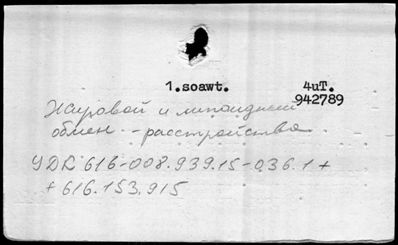 1.soawt. 4uT.
942789
Жировой и липоидный
обмен -- расстройства
УДК 616-008.939.15-036.1+
+616.153.915